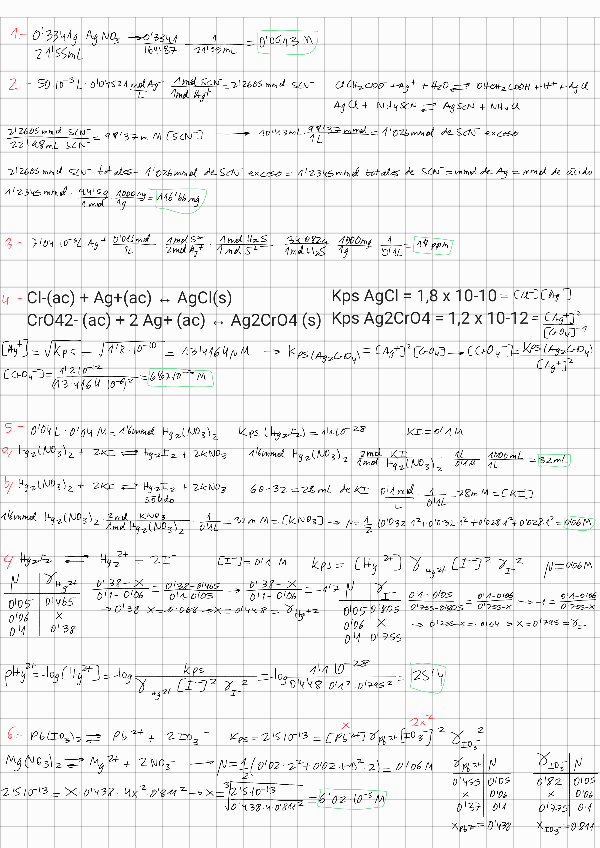 1.- 0'3341g AgNO3 → 0'3341/169'87 · 1/21'55mL = 0'0543 N
21'55mL
2.- 50·10^-3 L · 0'04521 mol Ag+/L · 1 mol SCN-/1 mol Ag+ = 2'2605 mmol SCN-
ClCH2COOH + Ag+ + H2O ⇌ OHCH2COOH + H+ + AgCl
AgCl + NH4SCN ⇌ AgSCN + NH4Cl
2'2605 mmol SCN-/22'98 mL SCN- = 98'37 mM [SCN-] → 10'43 mL · 98'37 mmol/1L = 1'026 mmol de SCN- exceso
2'2605 mmol SCN- totales - 1'026 mmol de SCN- exceso = 1'2345 mmol totales de SCN- = mmol de Ag = mmol de ácido
1'2345 mmol · 94'5g/1 mol · 1000mg/1g = 116'66 mg
3.- · 1 mol S2-/2 mol Ag+ · 1 mol H2S/1 mol S2- · 34'082g/1 mol H2S · 1000mg/1g · 1/0'1L = 14 ppm
4.- Cl-(ac) + Ag+(ac) ↔ AgCl(s) Kps AgCl = 1,8 x 10-10 = [Cl-][Ag+]
CrO42- (ac) + 2 Ag+ (ac) ↔ Ag2CrO4 (s) Kps Ag2CrO4 = 1,2 x 10-12 =
[Ag+] = √Kps = √1'8·10^-10 = 13'4164 µM → Kps(Ag2CrO4) = [Ag+]^2 [CrO4] → [CrO4^-] = Kps(Ag2CrO4)/[Ag+]^2
[CrO4^-] = 1'2·10^-12/(13'4164·10^-6)^2 = 6'67·10^-3 M
5.- 0'04L · 0'04M = 1'6mmol Hg2(NO3)2 Kps(Hg2I2) = 1'1·10^-28 KI = 0'1M
a) Hg2(NO3)2 + 2KI ⇌ Hg2I2 + 2KNO3 1'6mmol Hg2(NO3)2 · 2mol KI/1mol Hg2(NO3)2 · 1L/0'1M · 1000mL/1L = 32mL
b) Hg2(NO3)2 + 2KI ⇌ Hg2I2 + 2KNO3 60-32 = 28mL de KI 0'1 mol/L · 1/0'1L = 28mM = [KI]
sólido
1'6mmol Hg2(NO3)2 · 2mol KNO3/1mol Hg2(NO3)2 · 1/0'1L = 32mM = [KNO3] → N = 1/2 (0'032·1^2 + 0'032·1^2 + 0'028·1^2 + 0'028·1^2) = 0'06M
Hg2I2 ⇌ Hg2^2+ + 2I- [I-] = 0'1 M Kps = [Hg^2+] γHg2I [I-]^2 γI-^2 N = 0'06M
N | γHg^2+ 0'38-x/0'1-0'06 = 0'38-0'465/0'1-0'05 → 0'38-x/0'1-0'06 = -1'7 N | γI- 0'1-0'05/0'755-0'805 = 0'1-0'06/0'755-x → -1 = 0'1-0'06/0'755-x
0'05 | 0'465 → 0'38-x = -0'068 → x = 0'448 = γHg^2+ 0'05 | 0'805 → 0'755-x = -0'04 → x = 0'795 = γI-
0'06 | x 0'06 | x
0'1 | 0'38 0'1 | 0'755
pHg^2+ = -log[Hg^2+] = -log Kps/γHg2I [I-]^2 γI-^2 = -log 1'1·10^-28/0'448·0'1^2·0'795^2 =
x 2x^2
6.- Pb(IO3)2 ⇌ Pb^2+ + 2IO3- Kps = 2'5·10^-13 = [Pb^2+] γPb^2+ [IO3-]^2 γIO3-^2
Mg(NO3)2 ⇌ Mg^2+ + 2NO3- → N = 1/2 (0'02·2^2 + 0'02·1^2·2) = 0'06M γPb^2+ | N γIO3- | N
2'5·10^-13 = x · 0'438 · 4x^2 · 0'811^2 → x = ∛(2'5·10^-13/√0'438·4·0'811^2) = 6'02·10^-5 M 0'455 | 0'05 0'82 | 0'05
x | 0'06 x | 0'06
0'37 | 0'1 0'775 | 0.1
xPb2+ = 0'438 xIO3- = 0'811